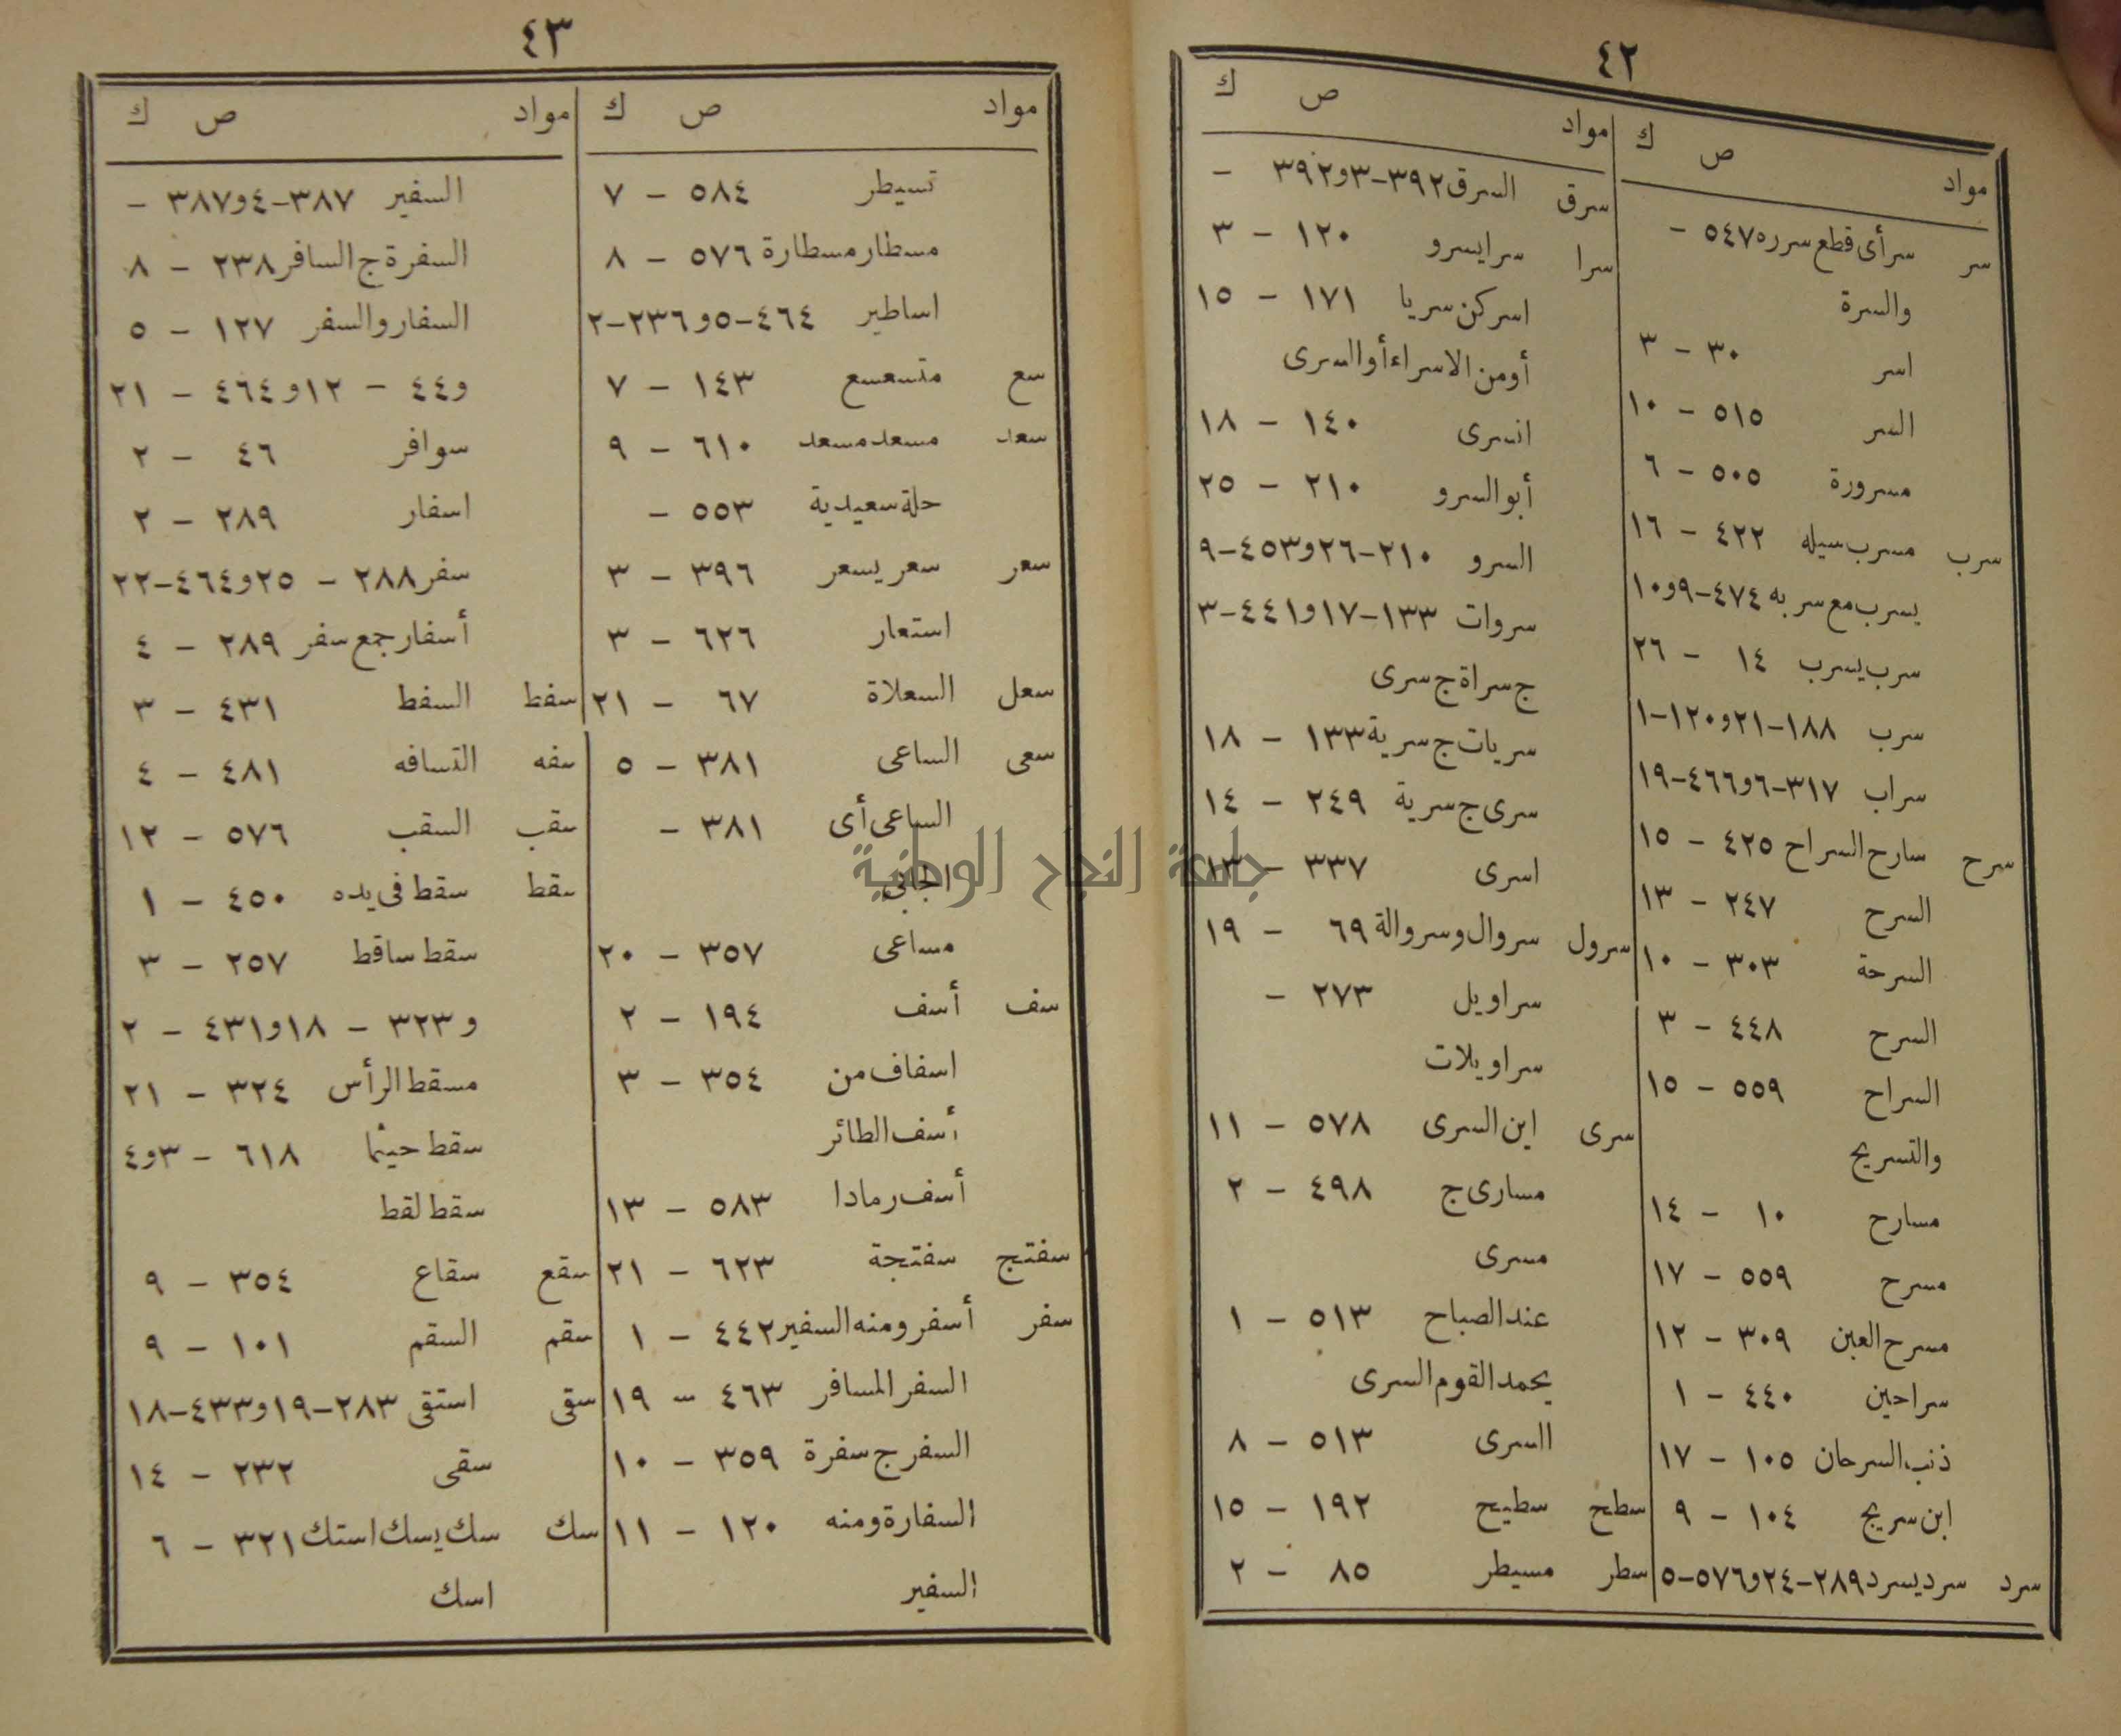 ٤٢
مواد ص ك
سر سرأى قطع سرره ٥٤٧ -
والسرة
اسر ٣٠ - ٣
السر ٥١٥ - ١٠
مسرورة ٥٠٥ - ٦
سرب مسرب سيله ٤٢٢ - ١٦
يسرب مع سربه ٤٧٤-٩و١٠
سرب يسرب ١٤ - ٢٦
سرب ١٨٨-٢١و١٢٠-١
سراب ٣١٧-٦و٤٦٦-١٩
سرح سارح السراح ٤٢٥ - ١٥
السرح ٢٤٧ - ١٣
السرحة ٣٠٣ - ١٠
السرح ٤٤٨ - ٣
السراح ٥٥٩ - ١٥
والتسريح
مسارح ١٠ - ١٤
مسرح ٥٥٩ - ١٧
مسرح العين ٣٠٩ - ١٢
سراحين ٤٤٠ - ١
ذنب السرحان ١٠٥ - ١٧
ابن سريج ١٠٤ - ٩
سرد سرد يسرد ٢٨٩-٢٤و٥٧٦-٥
مواد ص ك
سرق السرق ٣٩٢-٣و٣٩٢ -
سرا سرا يسرو ١٢٠ - ٣
اسركن سريا ١٧١ - ١٥
أومن الاسراء أوالسرى
انسرى ١٤٠ - ١٨
أبوالسرو ٢١٠ - ٢٥
السرو ٢١٠-٢٦و٤٥٣-٩
سروات ١٣٣-١٧و٤٤١-٣
ج سراة ج سرى
سريات ج سرية ١٣٣ - ١٨
سرى ج سرية ٢٤٩ - ١٤
اسرى ٣٣٧ - ١٣
سرول سروال وسروالة ٦٩ - ١٩
سراويل ٢٧٣ -
سراويلات
سرى ابن السرى ٥٧٨ - ١١
مسارى ج ٤٩٨ - ٢
مسرى
عند الصباح ٥١٣ - ١
يحمد القوم السرى
السرى ٥١٣ - ٨
سطح سطيح ١٩٢ - ١٥
سطر مسيطر ٨٥ - ٢
٤٣
مواد ص ك
تسيطر ٥٨٤ - ٧
مسطار مسطارة ٥٧٦ - ٨
اساطير ٤٦٤-٥و٢٣٦-٢
سع متسعسع ١٤٣ - ٧
سعد مسعد مسعد ٦١٠ - ٩
حلة سعيدية ٥٥٣ -
سعر سعر يسعر ٣٩٦ - ٣
استعار ٦٢٦ - ٣
سعل السعلاة ٦٧ - ٢١
سعى الساعى ٣٨١ - ٥
الساعى أى ٣٨١ -
الجابى
مساعى ٣٥٧ - ٢٠
سف أسف ١٩٤ - ٢
اسفاف من ٣٥٤ - ٣
أسف الطائر
أسف رمادا ٥٨٣ - ١٣
سفتج سفتجة ٦٢٣ - ٢١
سفر أسفر ومنه السفير ٤٤٢ - ١
السفر المسافر ٤٦٣ - ١٩
السفر ج سفرة ٣٥٩ - ١٠
السفارة ومنه ١٢٠ - ١١
السفير
مواد ص ك
السفير ٣٨٧-٤و٣٨٧ -
السفرة ج السافر ٢٣٨ - ٨
السفار والسفر ١٢٧ - ٥
و٤٤ - ١٢و٤٦٤ - ٢١
سوافر ٤٦ - ٢
اسفار ٢٨٩ - ٢
سفر ٢٨٨ - ٢٥و٤٦٤-٢٢
أسفار جمع سفر ٢٨٩ - ٤
سفط السفط ٤٣١ - ٣
سفه التسافه ٤٨١ - ٤
سقب السقب ٥٧٦ - ١٢
سقط سقط فى يده ٤٥٠ - ١
سقط ساقط ٢٥٧ - ٣
و٣٢٣ - ١٨و٤٣١ - ٢
مسقط الرأس ٣٢٤ - ٢١
سقط حيثما ٦١٨ - ٣و٤
سقط لقط
سقع سقاع ٣٥٤ - ٩
سقم السقم ١٠١ - ٩
سقى استقى ٢٨٣-١٩و٤٣٣-١٨
سقى ٢٣٢ - ١٤
سك سك يسك استك ٣٢١ - ٦
اسك
جامعة النجاح الوطنية